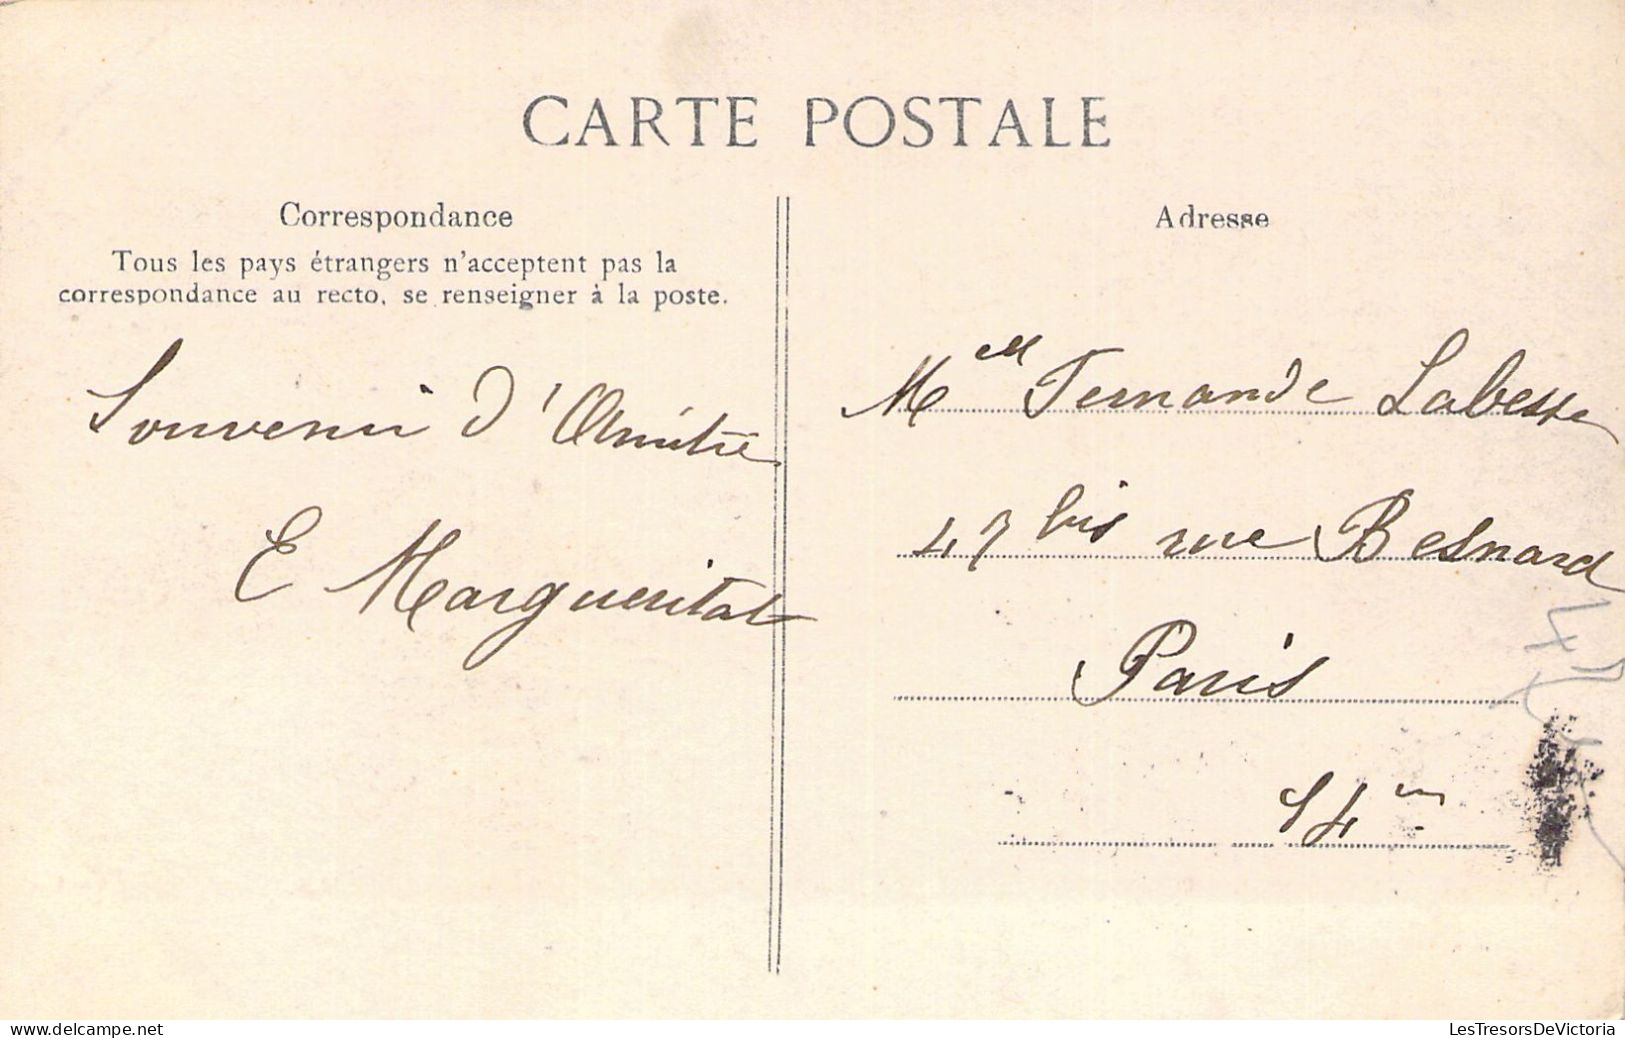 CARTE POSTALE
Correspondance
Tous les pays étrangers n'acceptent pas la
correspondance au recto, se renseigner à la poste.
Souvenir d'Amitié
E Margueritat
Adresse
Mell Fernande Labesse
47 bis rue Besnard
Paris
14m
www.delcampe.net
LesTresorsDeVictoria